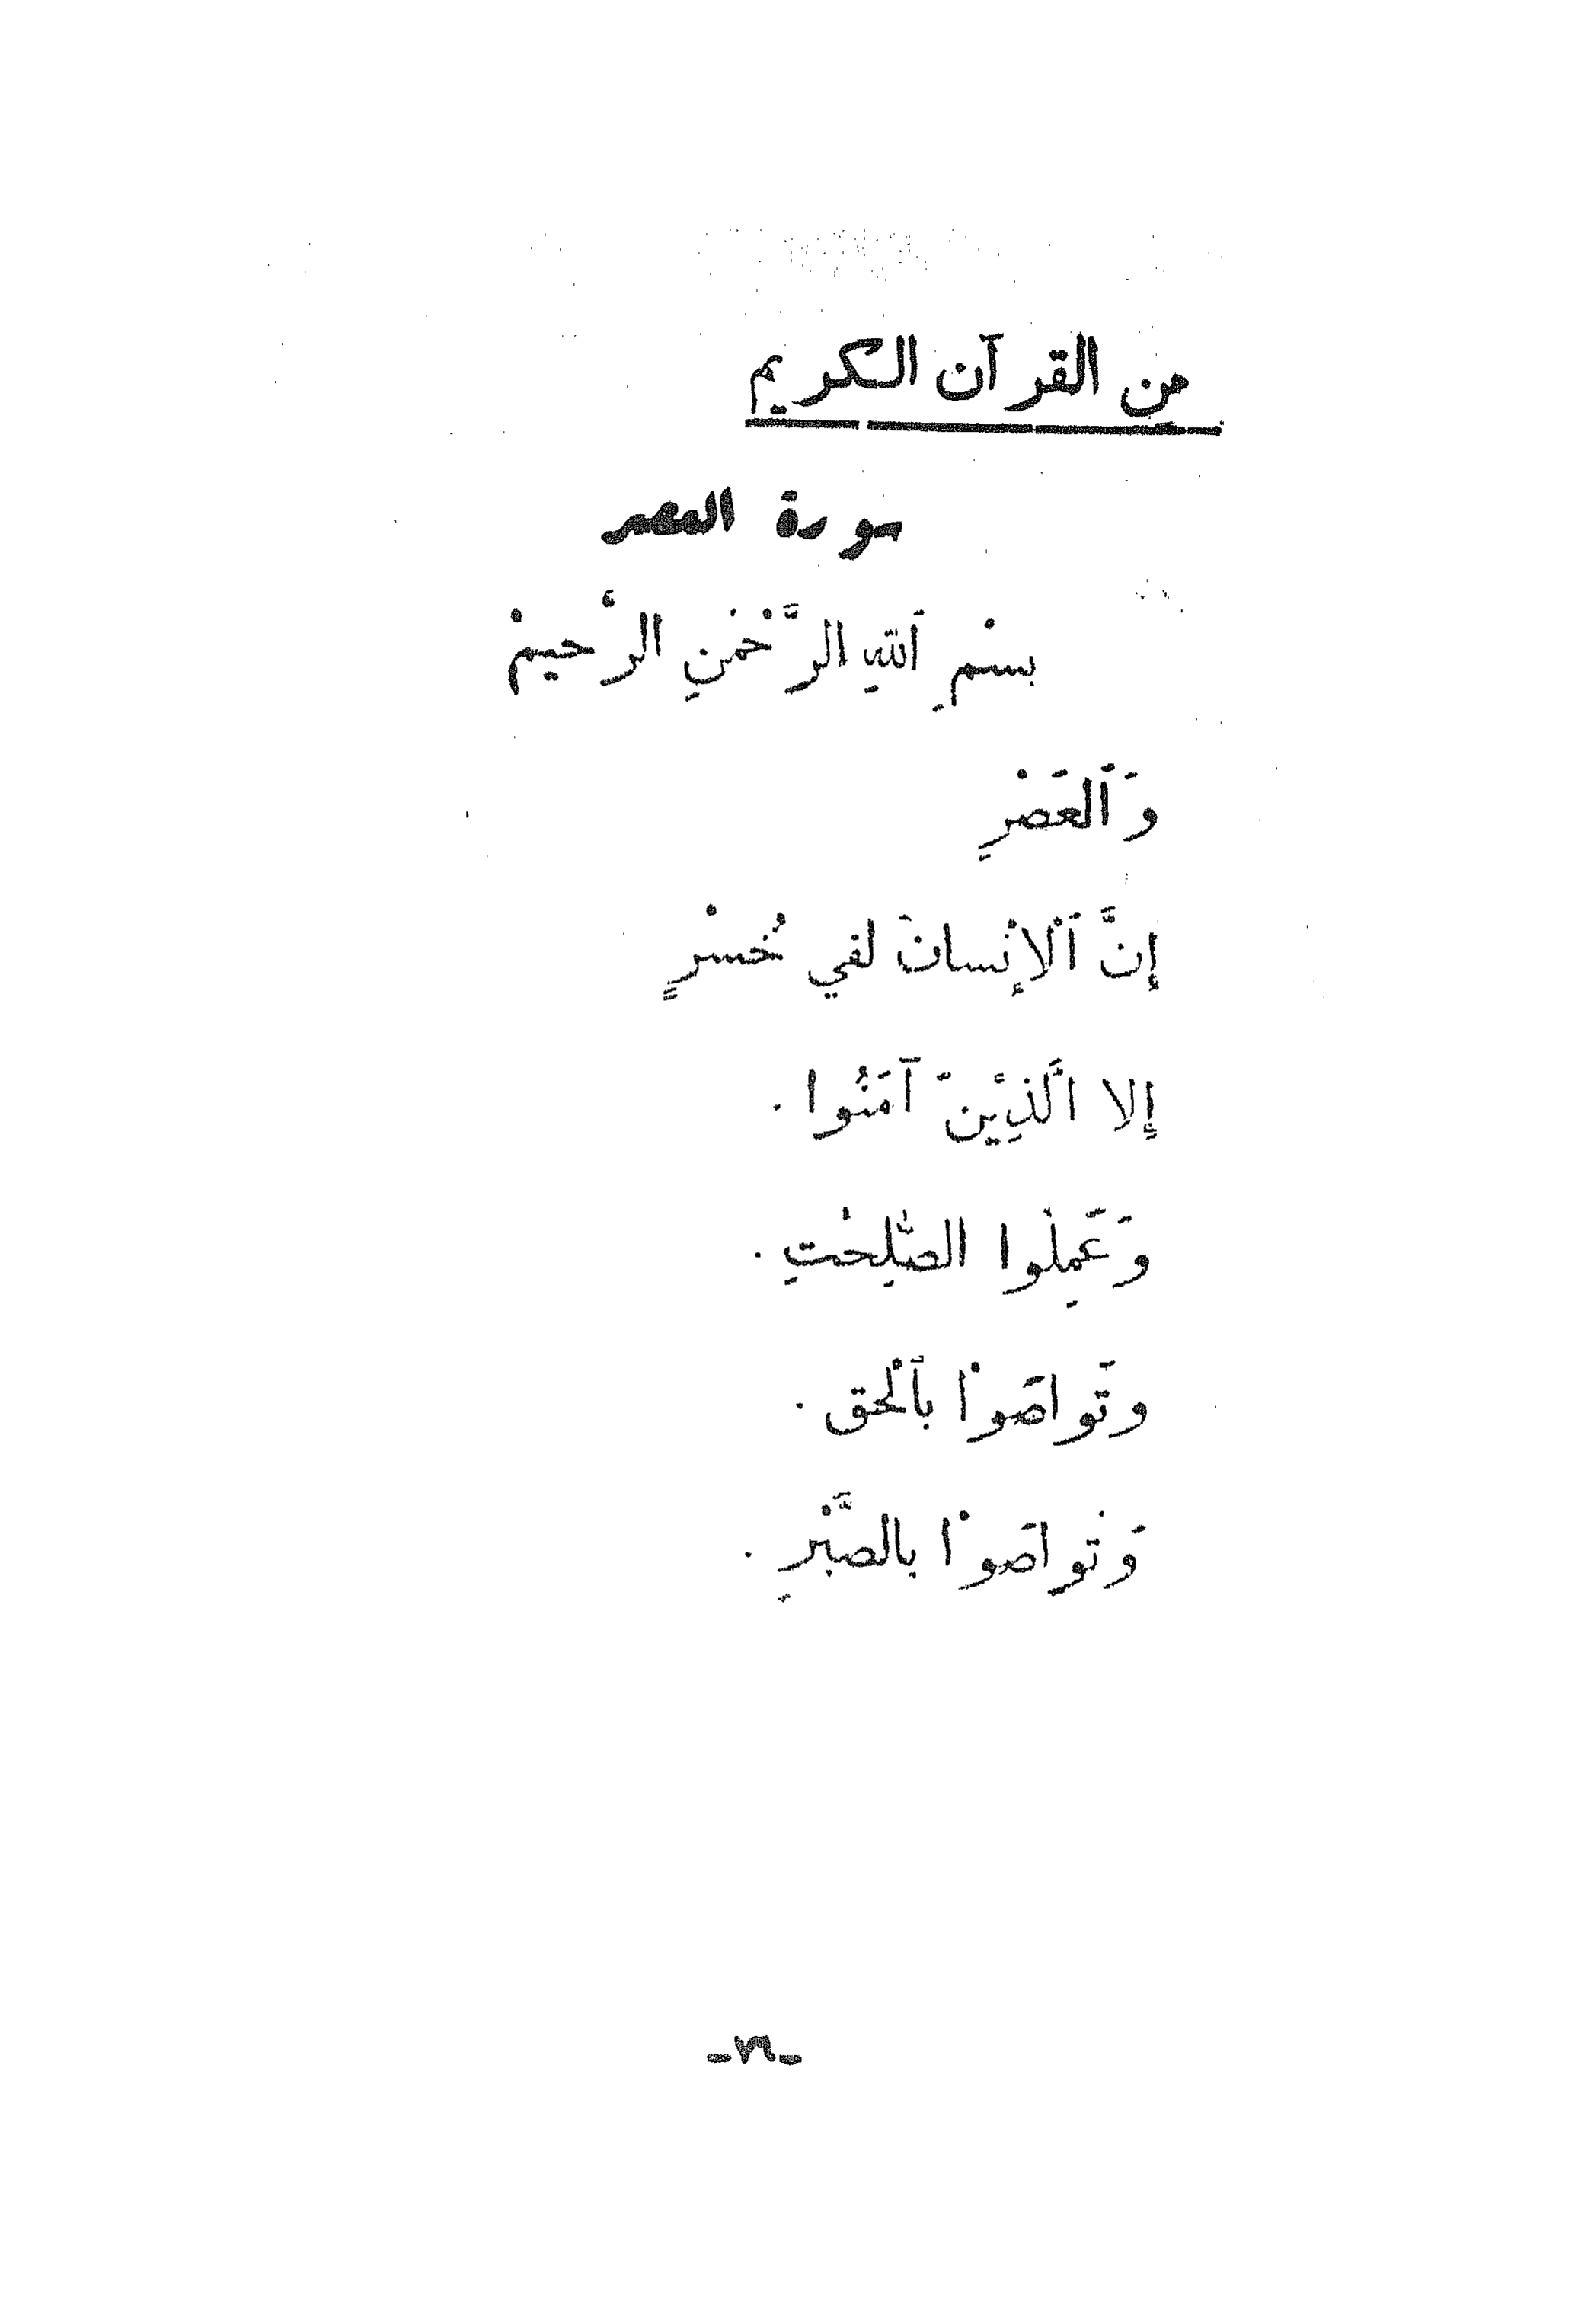 من القرآن الكريم
سورة العصر
بسْمِ ٱللهِ الرَّحْمٰنِ الرَّحيمْ
وَٱلعَصْرِ
إنَّ ٱلْإنْسانَ لفي خُسْرٍ
إلا الَّذِيْنَ آمَنُوا .
وَعَمِلُوا الصّٰلِحٰتِ .
وتَواصَوْا بٱلْحق .
وَتَواصَوْا بالصَّبْرِ .
-٧٦-